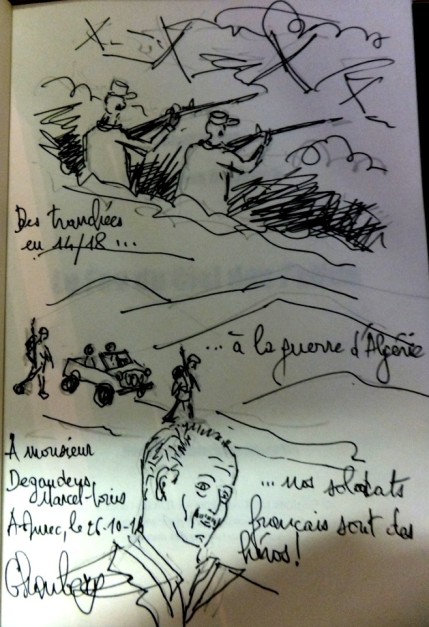 Des tranchées
en 14/18 ...
... à la guerre d'Algérie
À monsieur
Marcel-Louis
le 26-10-
... nos soldats
français sont des
héros !